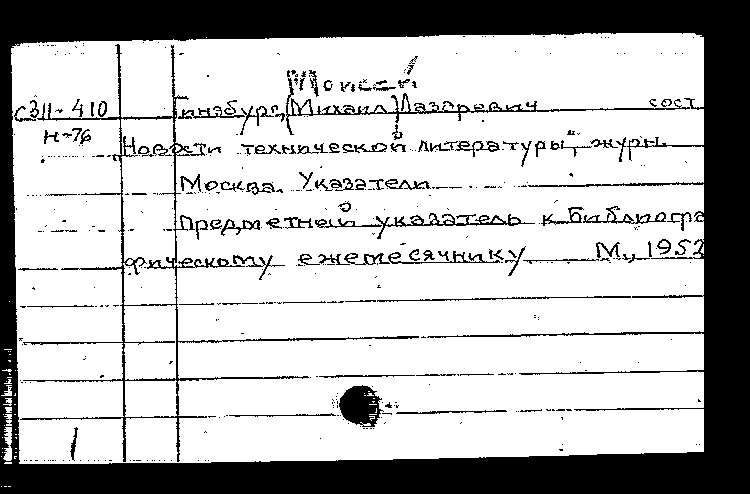 Моисей
С311-410 Гинзбург, (Михаил) Лазаревич сост
Н-76
„Новости технической литературы", журн.
Москва. Указатели
Предметный указатель к библиогра
фическому ежемесячнику М., 1952